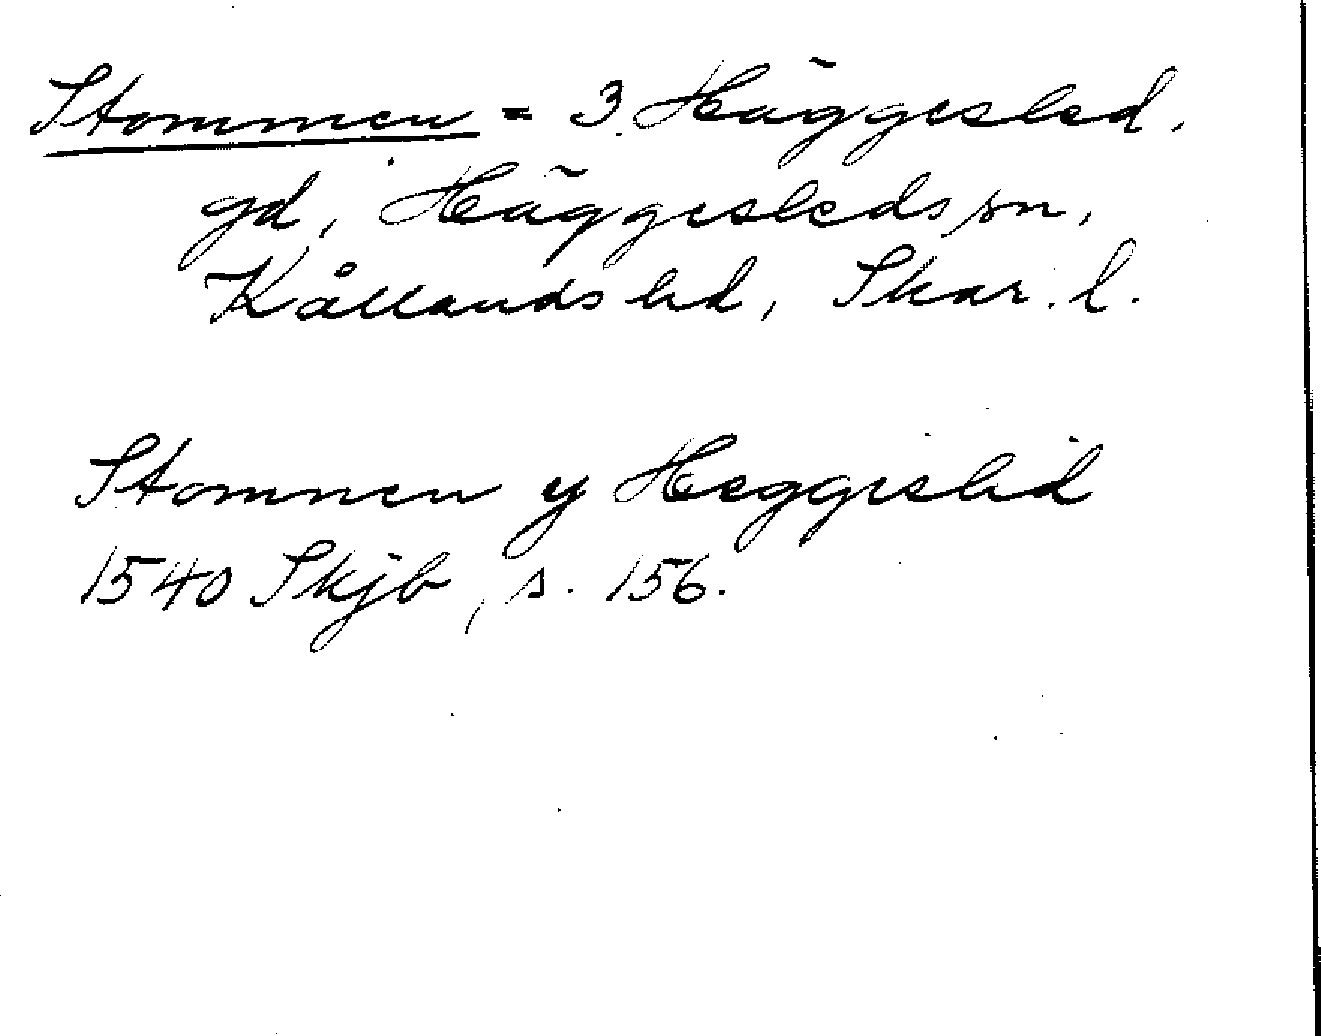 Stommen = 3 Häggesled,
gd, Häggesleds sn,
Kållands hd, Skar. l.
Stommen y Heggislid
1540 Skjb, s. 156.